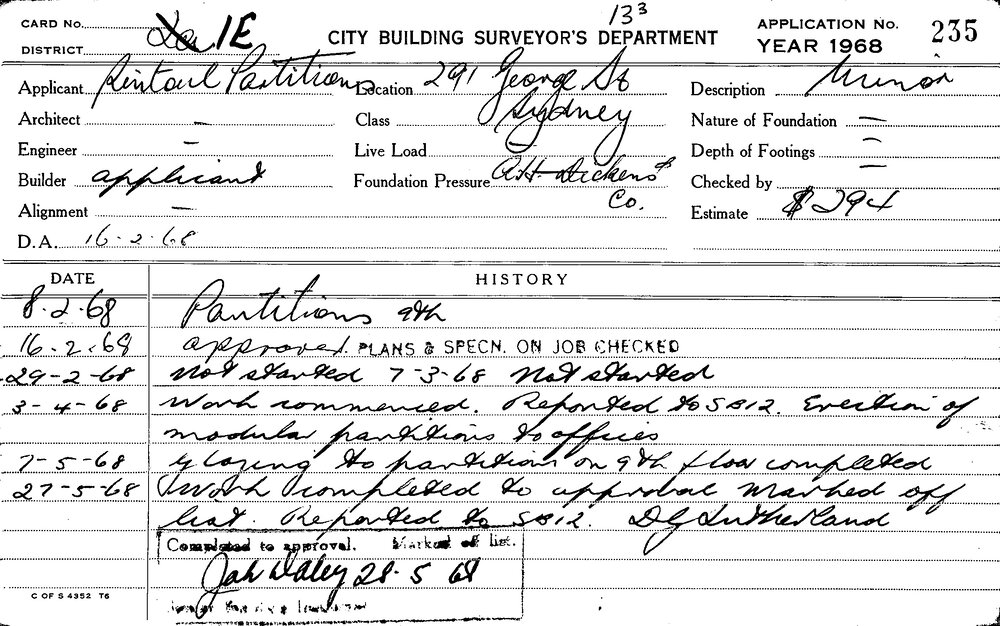 13³
CARD No. 1E
CITY BUILDING SURVEYOR'S DEPARTMENT
APPLICATION No. 235
DISTRICT
YEAR 1968
Applicant Rintoul Partitions Location 291 George St Description Minor
Architect — Class Sydney Nature of Foundation —
Engineer — Live Load — Depth of Footings —
Builder applicant Foundation Pressure A.H. Dickens & Checked by —
Alignment — Co. Estimate $294
D.A. 16-2-68
DATE HISTORY
8.2.68 Partitions 9th
16.2.68 approved. PLANS & SPECN. ON JOB CHECKED
29-2-68 Not started 7-3-68 Not started
3-4-68 Work commenced. Reported to SB12. Erection of
modular partitions to offices
7-5-68 Glazing to partition on 9th floor completed
27-5-68 Work completed to approval marked off
list. Reported to SB12. DG Sutherland
Completed to approval. Marked off list.
Daley 28.5 68
C OF S 4352 T6